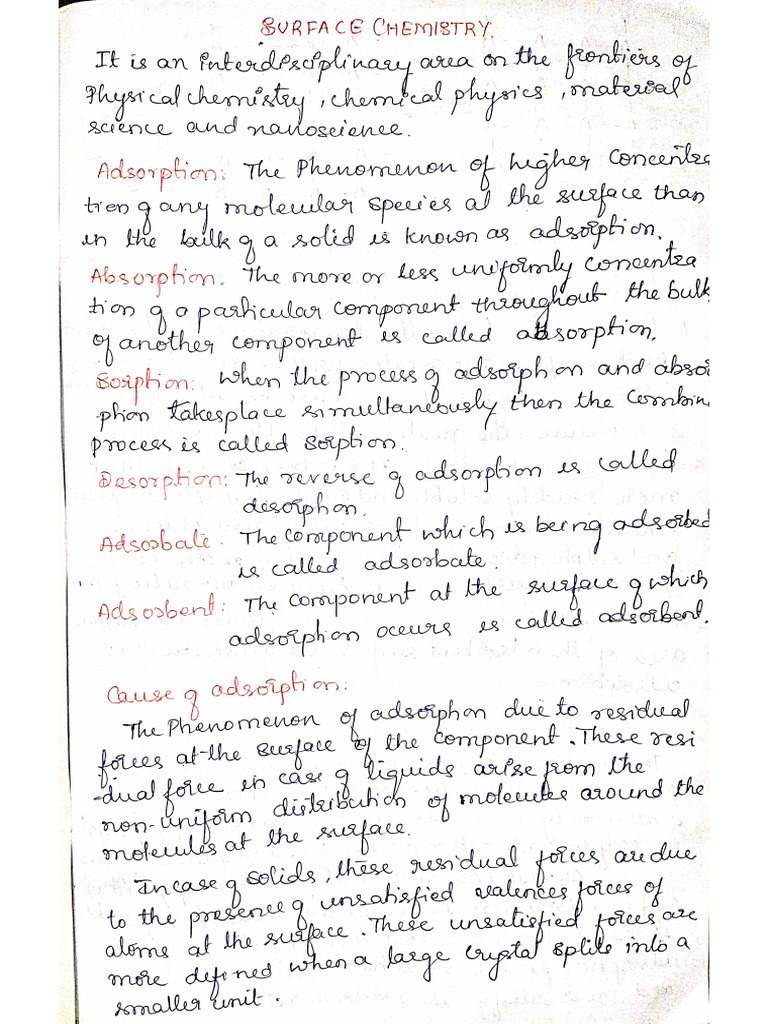 SURFACE CHEMISTRY.
It is an interdisciplinary area on the frontiers of
Physical chemistry, chemical physics, material
science and nanoscience.
Adsorption: The Phenomenon of higher concentra
tion of any molecular species at the surface than
in the bulk of a solid is known as adsorption.
Absorption. The more or less uniformly concentra
tion of a particular component throughout the bulk
of another component is called absorption.
Sorption: When the process of adsorption and absor
ption takesplace simultaneously then the Combin
process is called Sorption.
Desorption: The reverse of adsorption is called
desorption.
Adsorbate: The component which is being adsorbed
is called adsorbate.
Adsorbent: The component at the surface of which
adsorption occurs is called adsorbent.
Cause of adsorption:
The Phenomenon of adsorption due to residual
forces at the surface of the component. These resi
-dual force in case of liquids arise from the
non-uniform distribution of molecules around the
molecules at the surface.
In case of solids, these residual forces are due
to the presence of unsatisfied valences forces of
atoms at the surface. These unsatisfied forces are
more defined when a large crystal splits into a
smaller unit.